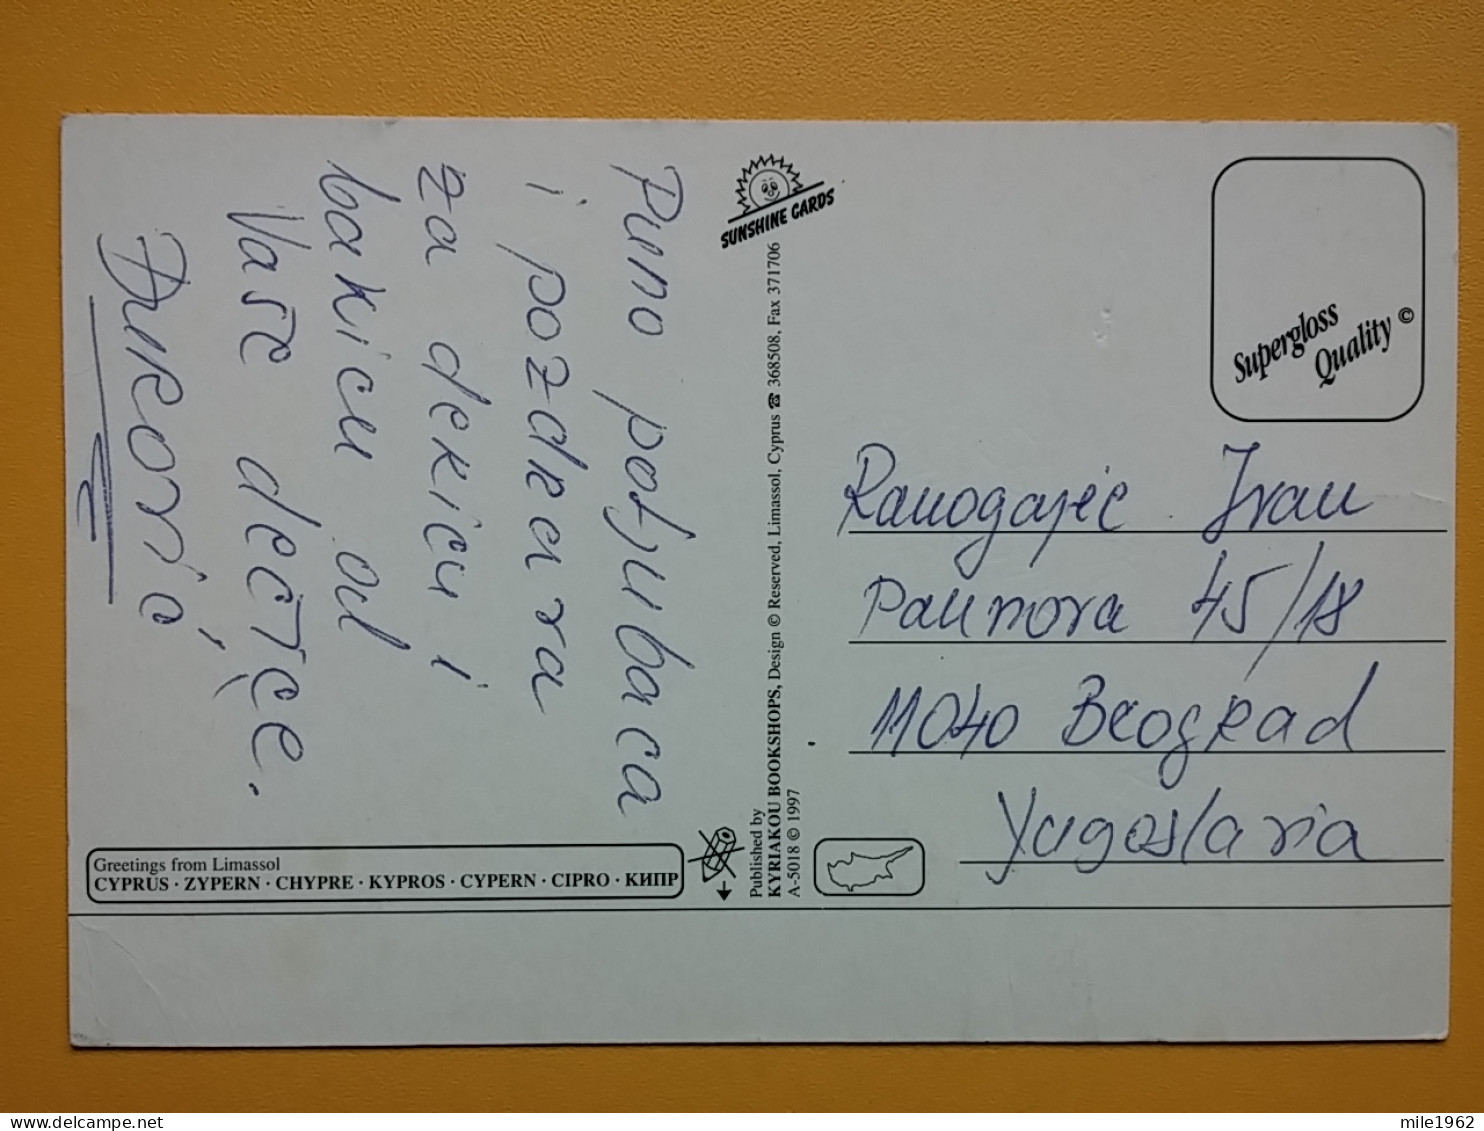 Puno poljubaca
i pozdrava
za dekicu i
bakicu od
Vaše dečice.
Đurović
SUNSHINE CARDS
Published by
KYRIAKOU BOOKSHOPS, Design © Reserved, Limassol, Cyprus ☎ 368508, Fax 371706
A-5018 © 1997
Supergloss
Quality ©
Ranogajec Ivan
Paunova 45/18
11040 Beograd
Yugoslavia
Greetings from Limassol
CYPRUS · ZYPERN · CHYPRE · KYPROS · CYPERN · CIPRO · КИПР
mile1962